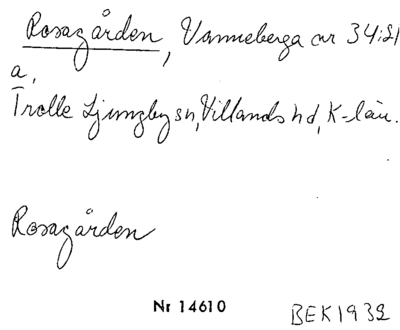 Rosagården, Vanneberga nr 34:21
a,
Trolle Ljungby sn, Villands hd, K-län.
Rosagården
Nr 14610
BEK 1932